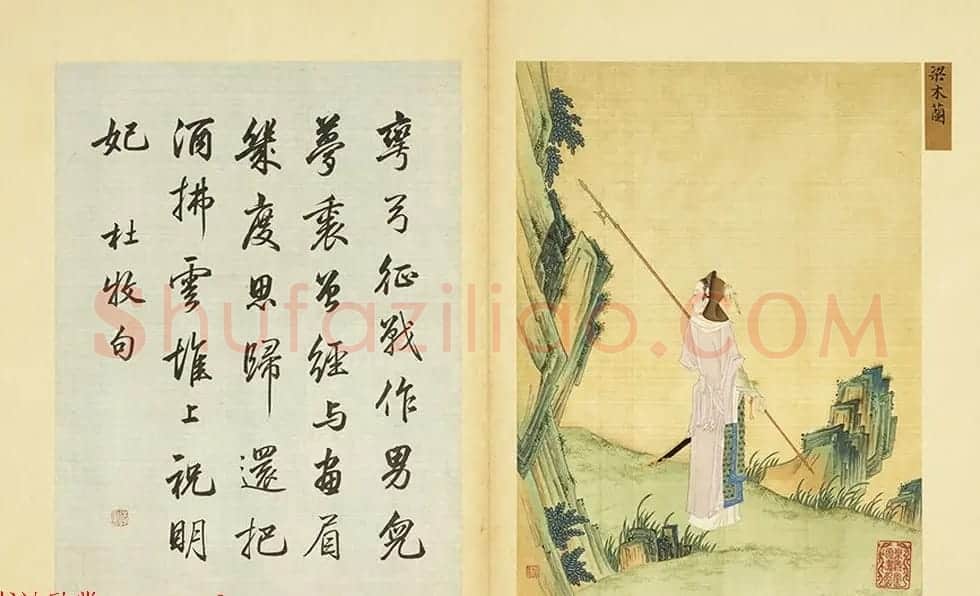 梁木蘭
彎弓征戰作男兒
夢裏曾經与畫眉
幾度思歸還把
酒拂雲堆上祝明
妃
杜牧句
Shufaziliao.COM